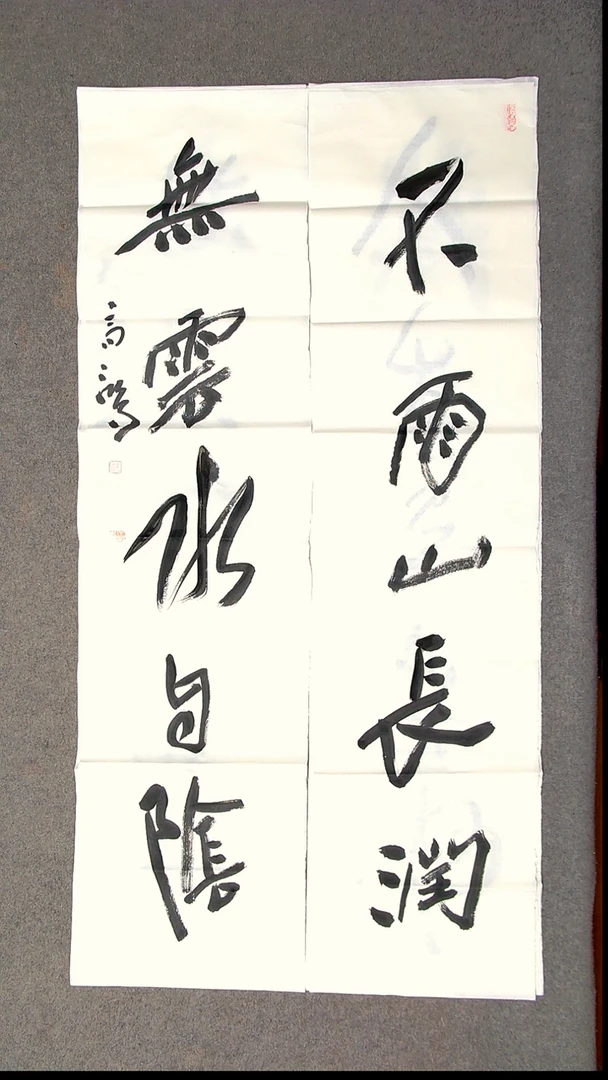 不雨山長潤
無雲水自陰